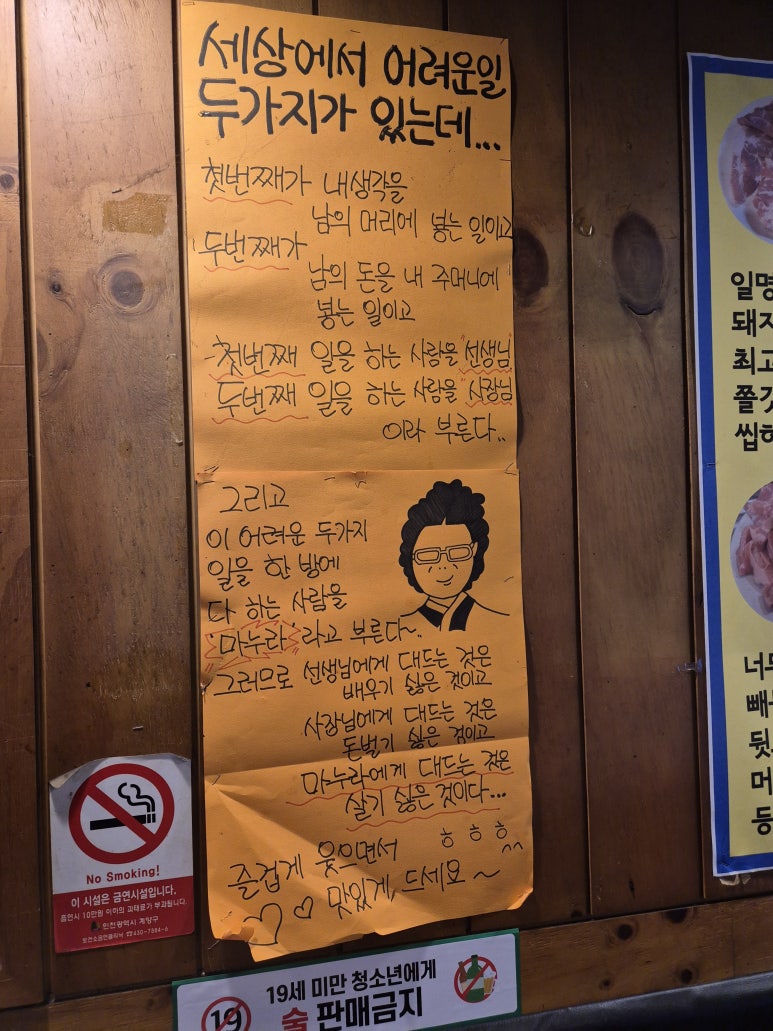 세상에서 어려운일
두가지가 있는데...
첫번째가 내생각을
남의 머리에 넣는 일이고
두번째가
남의 돈을 내 주머니에
넣는 일이고
첫번째 일을 하는 사람을 "선생님"
두번째 일을 하는 사람을 "사장님"
이라 부른다..
그리고
이 어려운 두가지
일을 한 방에
다 하는 사람을
"마누라" 라고 부른다~..
그러므로 선생님에게 대드는 것은
배우기 싫은 것이고
사장님에게 대드는 것은
돈벌기 싫은 것이고
마누라에게 대드는 것은
살기 싫은 것이다...
ㅎ ㅎ ㅎ ^^
즐겁게 웃으면서
맛있게, 드세요~
No Smoking!
이 시설은 금연시설입니다.
흡연시 10만원 이하의 과태료가 부과됩니다.
인천광역시 계양구
19세 미만 청소년에게
술 판매금지
19
일명
돼지
최고
쫄깃
씹히
너무
빼
뒷
머
등